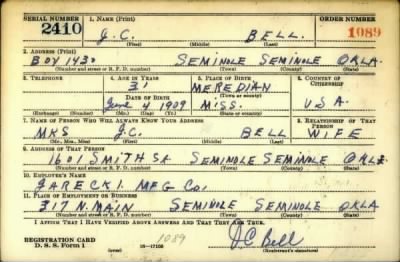 SERIAL NUMBER 1. NAME (Print) ORDER NUMBER
2410 J.C. BELL. 1089
(First) (Middle) (Last)
2. ADDRESS (Print)
BOX 1430 SEMINOLE SEMINOLE OKLA.
(Number and street or R. F. D. number) (Town) (County) (State)
3. TELEPHONE 4. AGE IN YEARS 5. PLACE OF BIRTH 6. COUNTRY OF CITIZENSHIP
31 MEREDIAN
DATE OF BIRTH (Town or county)
4 1909 MISS. USA.
(Exchange) (Number) (Mo.) (Day) (Yr.) (State or country)
7. NAME OF PERSON WHO WILL ALWAYS KNOW YOUR ADDRESS 8. RELATIONSHIP OF THAT PERSON
MRS J.C. BELL WIFE
(Mr., Mrs., Miss) (First) (Middle) (Last)
9. ADDRESS OF THAT PERSON
1601 SMITH SEMINOLE SEMINOLE OKLA
(Number and street or R. F. D. number) (Town) (County) (State)
10. EMPLOYER'S NAME
JARECKI. MFG CO.
11. PLACE OF EMPLOYMENT OR BUSINESS
317 N. MAIN SEMINOLE SEMINOLE OKLA
(Number and street or R. F. D. number) (Town) (County) (State)
I AFFIRM THAT I HAVE VERIFIED ABOVE ANSWERS AND THAT THEY ARE TRUE.
REGISTRATION CARD 1089 J.C. Bell
D. S. S. Form 1 16—17105 (Registrant's signature)